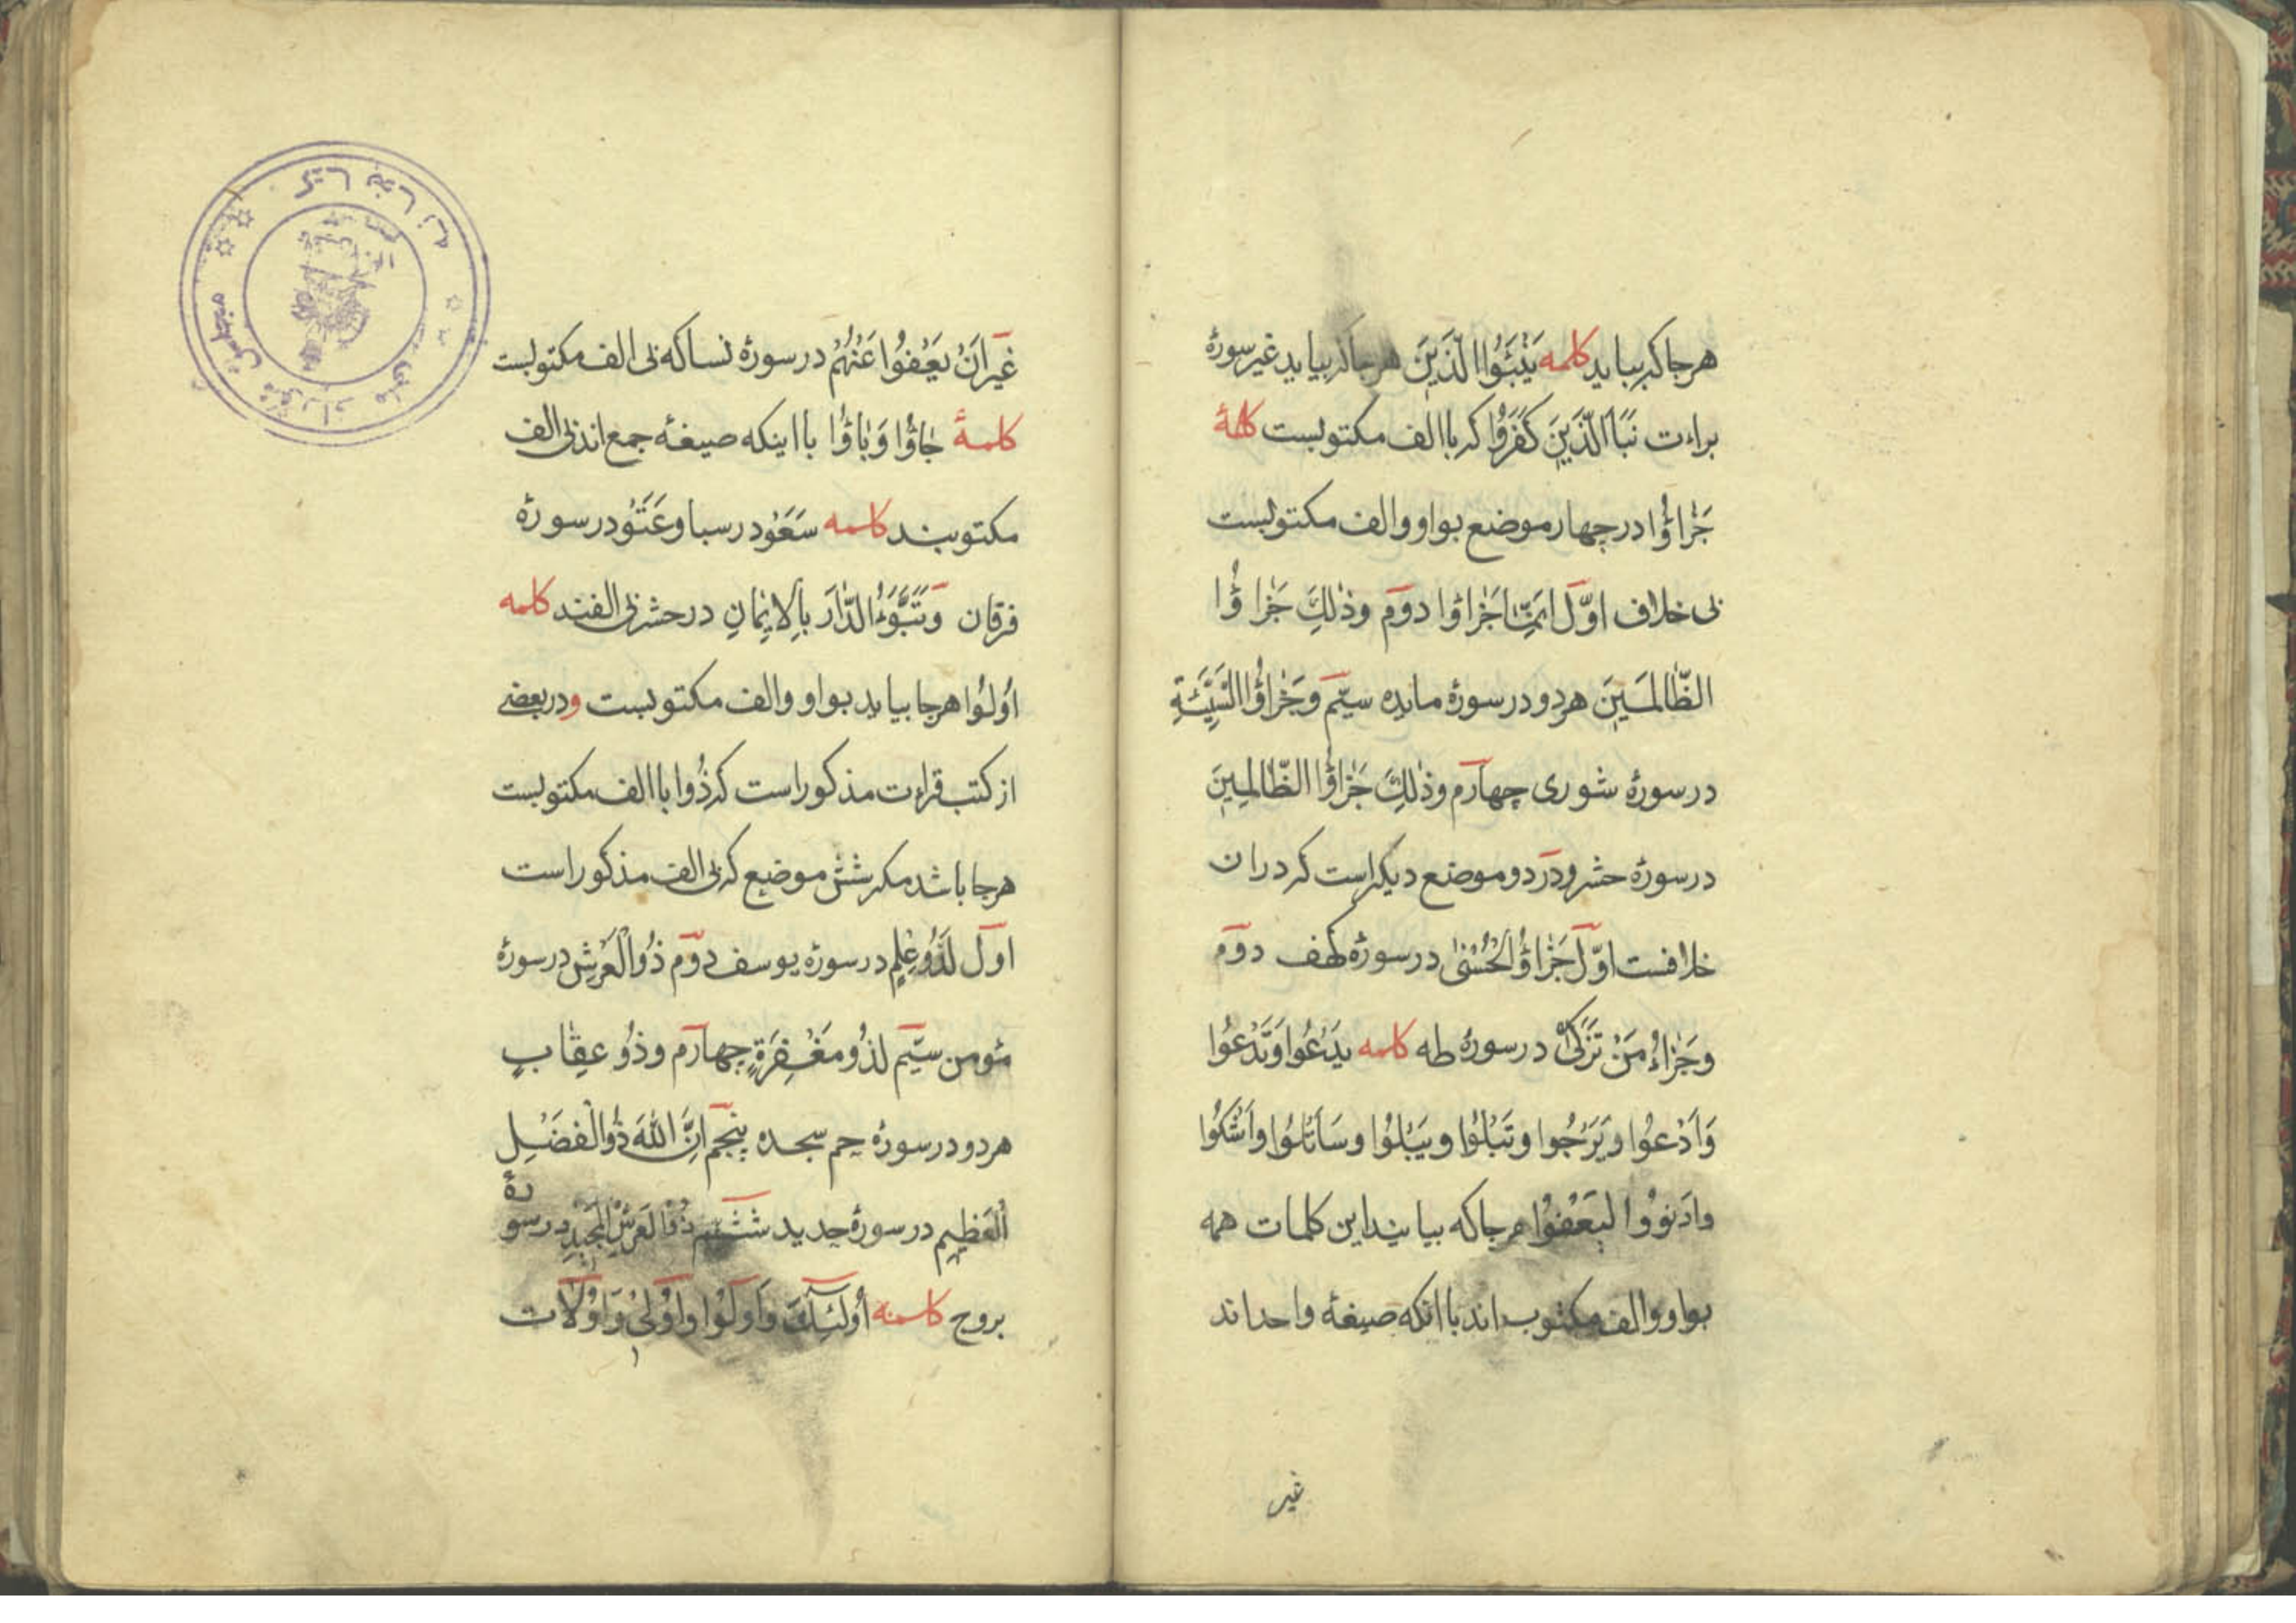 هرجا که بیاید کلمه یَنْبَئُوُا الَّذَینَ هرجا که بیاید غیر سورهٔ
براءت نَبَأَ الَّذَینَ کَفَرَوُا که با الف مکتوبست کلمهٔ
جَزاؤُا در چهار موضع بواو و الف مکتوبست
بی خلاف اوّل اِنَّمٰا جَزاؤا دوم وذٰلِکَ جَزاؤُا
الظّالمَینَ هر دو در سورهٔ مایده سیّم وَجَزاؤُا السَّیِّئَةِ
در سورهٔ شوری چهارم وذٰلِکَ جَزاؤُا الظّالمِینَ
در سورهٔ حشر و در دو موضع دیگر است که در ان
خلافست اوّل جَزاؤُا الْحُسْنیٰ در سورهٔ کهف دوم
وجَزاءُ مَنْ تَزَکّیٰ در سورهٔ طه کلمه یَدْعُوا وَتَدْعُوا
وَاَدْعوُا ویَرْجُوا وتَبْلوُا ویَبْلُوا وسَاَتْلوُا واَشْکُوا
وادَنوُوا لیَعْفوُا هرجا که بیایند این کلمات همه
بواو و الف مکتوب اند با انکه صیغهٔ واحد اند
غیر
غیر اَنْ یَعْفُوا عَنْهُمْ در سورهٔ نسا که بی الف مکتوبست
کلمهٔ جٰاؤُا وَبٰاؤُا با اینکه صیغهٔ جمع اند بی الف
مکتوبند کلمه سَعَوْ در سبا وعَتَوْ در سورهٔ
فرقان وَتَبَّوَءُ الدّٰارَ بِالاِیٖمٰانِ در حشر بی الفند کلمه
اوُلوُا هرجا بیاید بواو و الف مکتوبست و در بعضی
از کتب قراءت مذکور است که ذُوا با الف مکتوبست
هرجا باشد مکر شش موضع که بی الف مذکور است
اول لَذُو عِلمٍ در سورهٔ یوسف دوم ذُو الْعَرْشِ در سورهٔ
مؤمن سیّم لذُو مَغْفِرَةٍ چهارم وذُو عِقٰابٍ
هر دو در سورهٔ حم سجده پنجم اِنَّ اللهَ ذُو الْفَضْلِ
الْعَظیٖم در سورهٔ حدید ششم ذُو الْعَرْشِ الْمَجیدِ در سورهٔ
بروج کلمه اُولئِکَ وَاُولوُا وَاُولیٖ وَاُوْلاٰت
کتابخانه مجلس شورای ملی